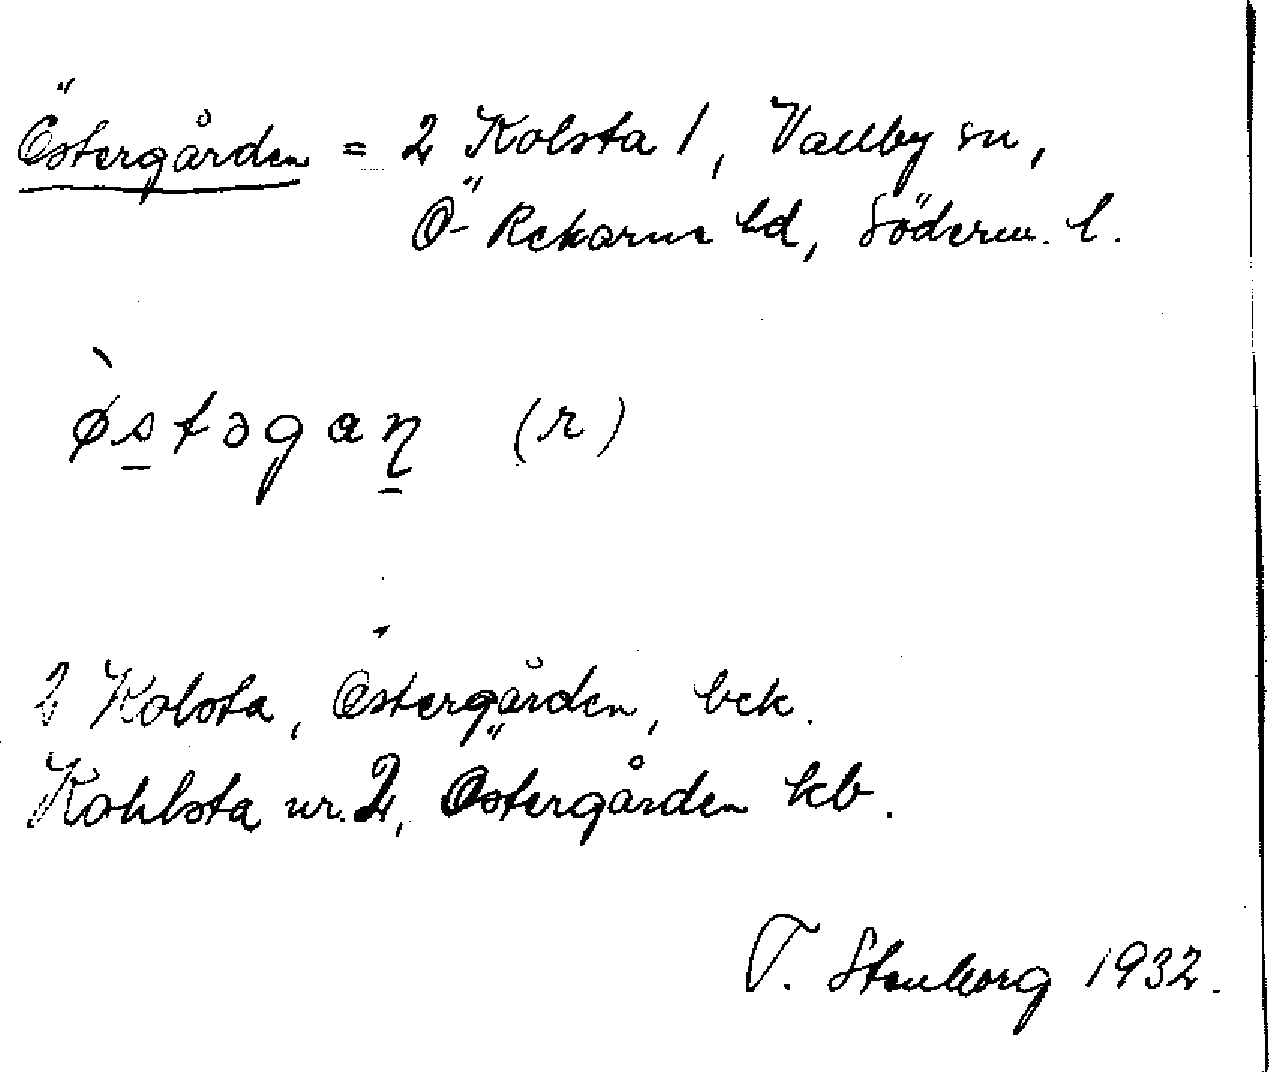 Östergården = 2 Kolsta 1, Vallby sn,
Ö- Rekarne hd, Söderm. l.
ø̀stəgaṇ (r)
2 Kolsta, Östergården, bek.
Kohlsta nr. 2, Östergården kb.
T. Stenborg 1932.